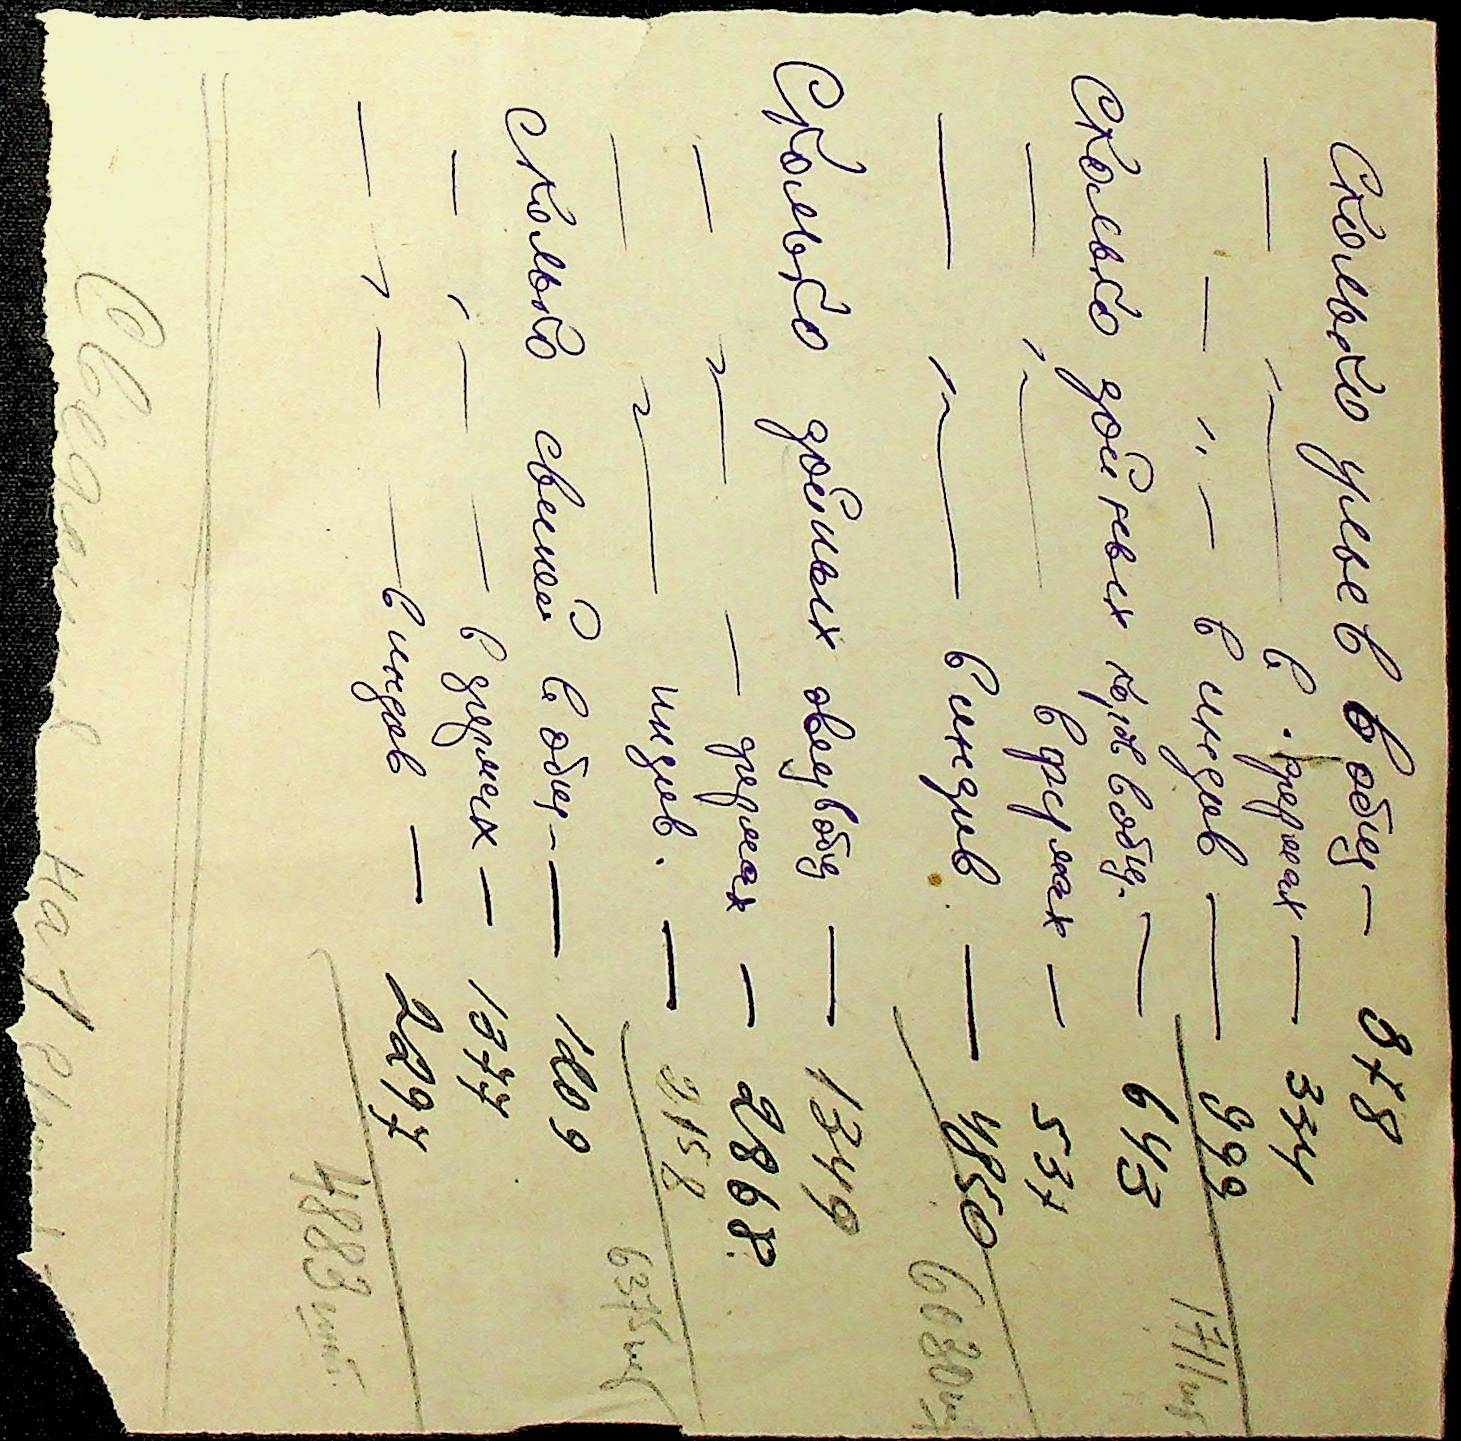 Сколько ульев в общ — 378
— " — в. фермах — 334
— " — в индив — 999
1711 шт
Сколько дойных коров в общ. — 643
— " — в фермах — 537
— " — в индив — 4850
6030 шт
Сколько дойных овец в общ — 1349
— " — — фермах — 2868
— " — индив. — 2158
6375 шт
Сколько свиней в общ — 1209
— " — — в фермах — 1377
— " — — в индив — 2297
4883
Сведения на 1